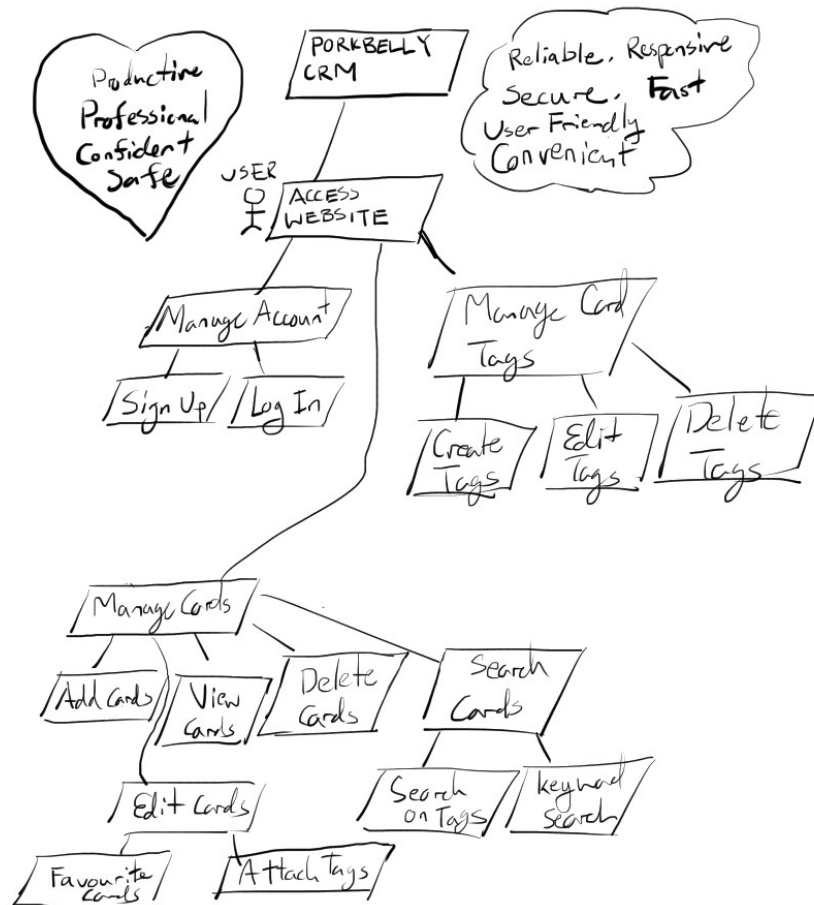 Productive
Professional
Confident
Safe
PORKBELLY
CRM
Reliable, Responsive
Secure, Fast
User Friendly
Convenient
USER
ACCESS
WEBSITE
Manage Account
Sign Up
Log In
Manage Card
Tags
Create
Tags
Edit
Tags
Delete
Tags
Manage Cards
Add Cards
View
Cards
Delete
Cards
Search
Cards
Edit Cards
Search
on Tags
keyword
search
Favourite
Cards
Attach Tags